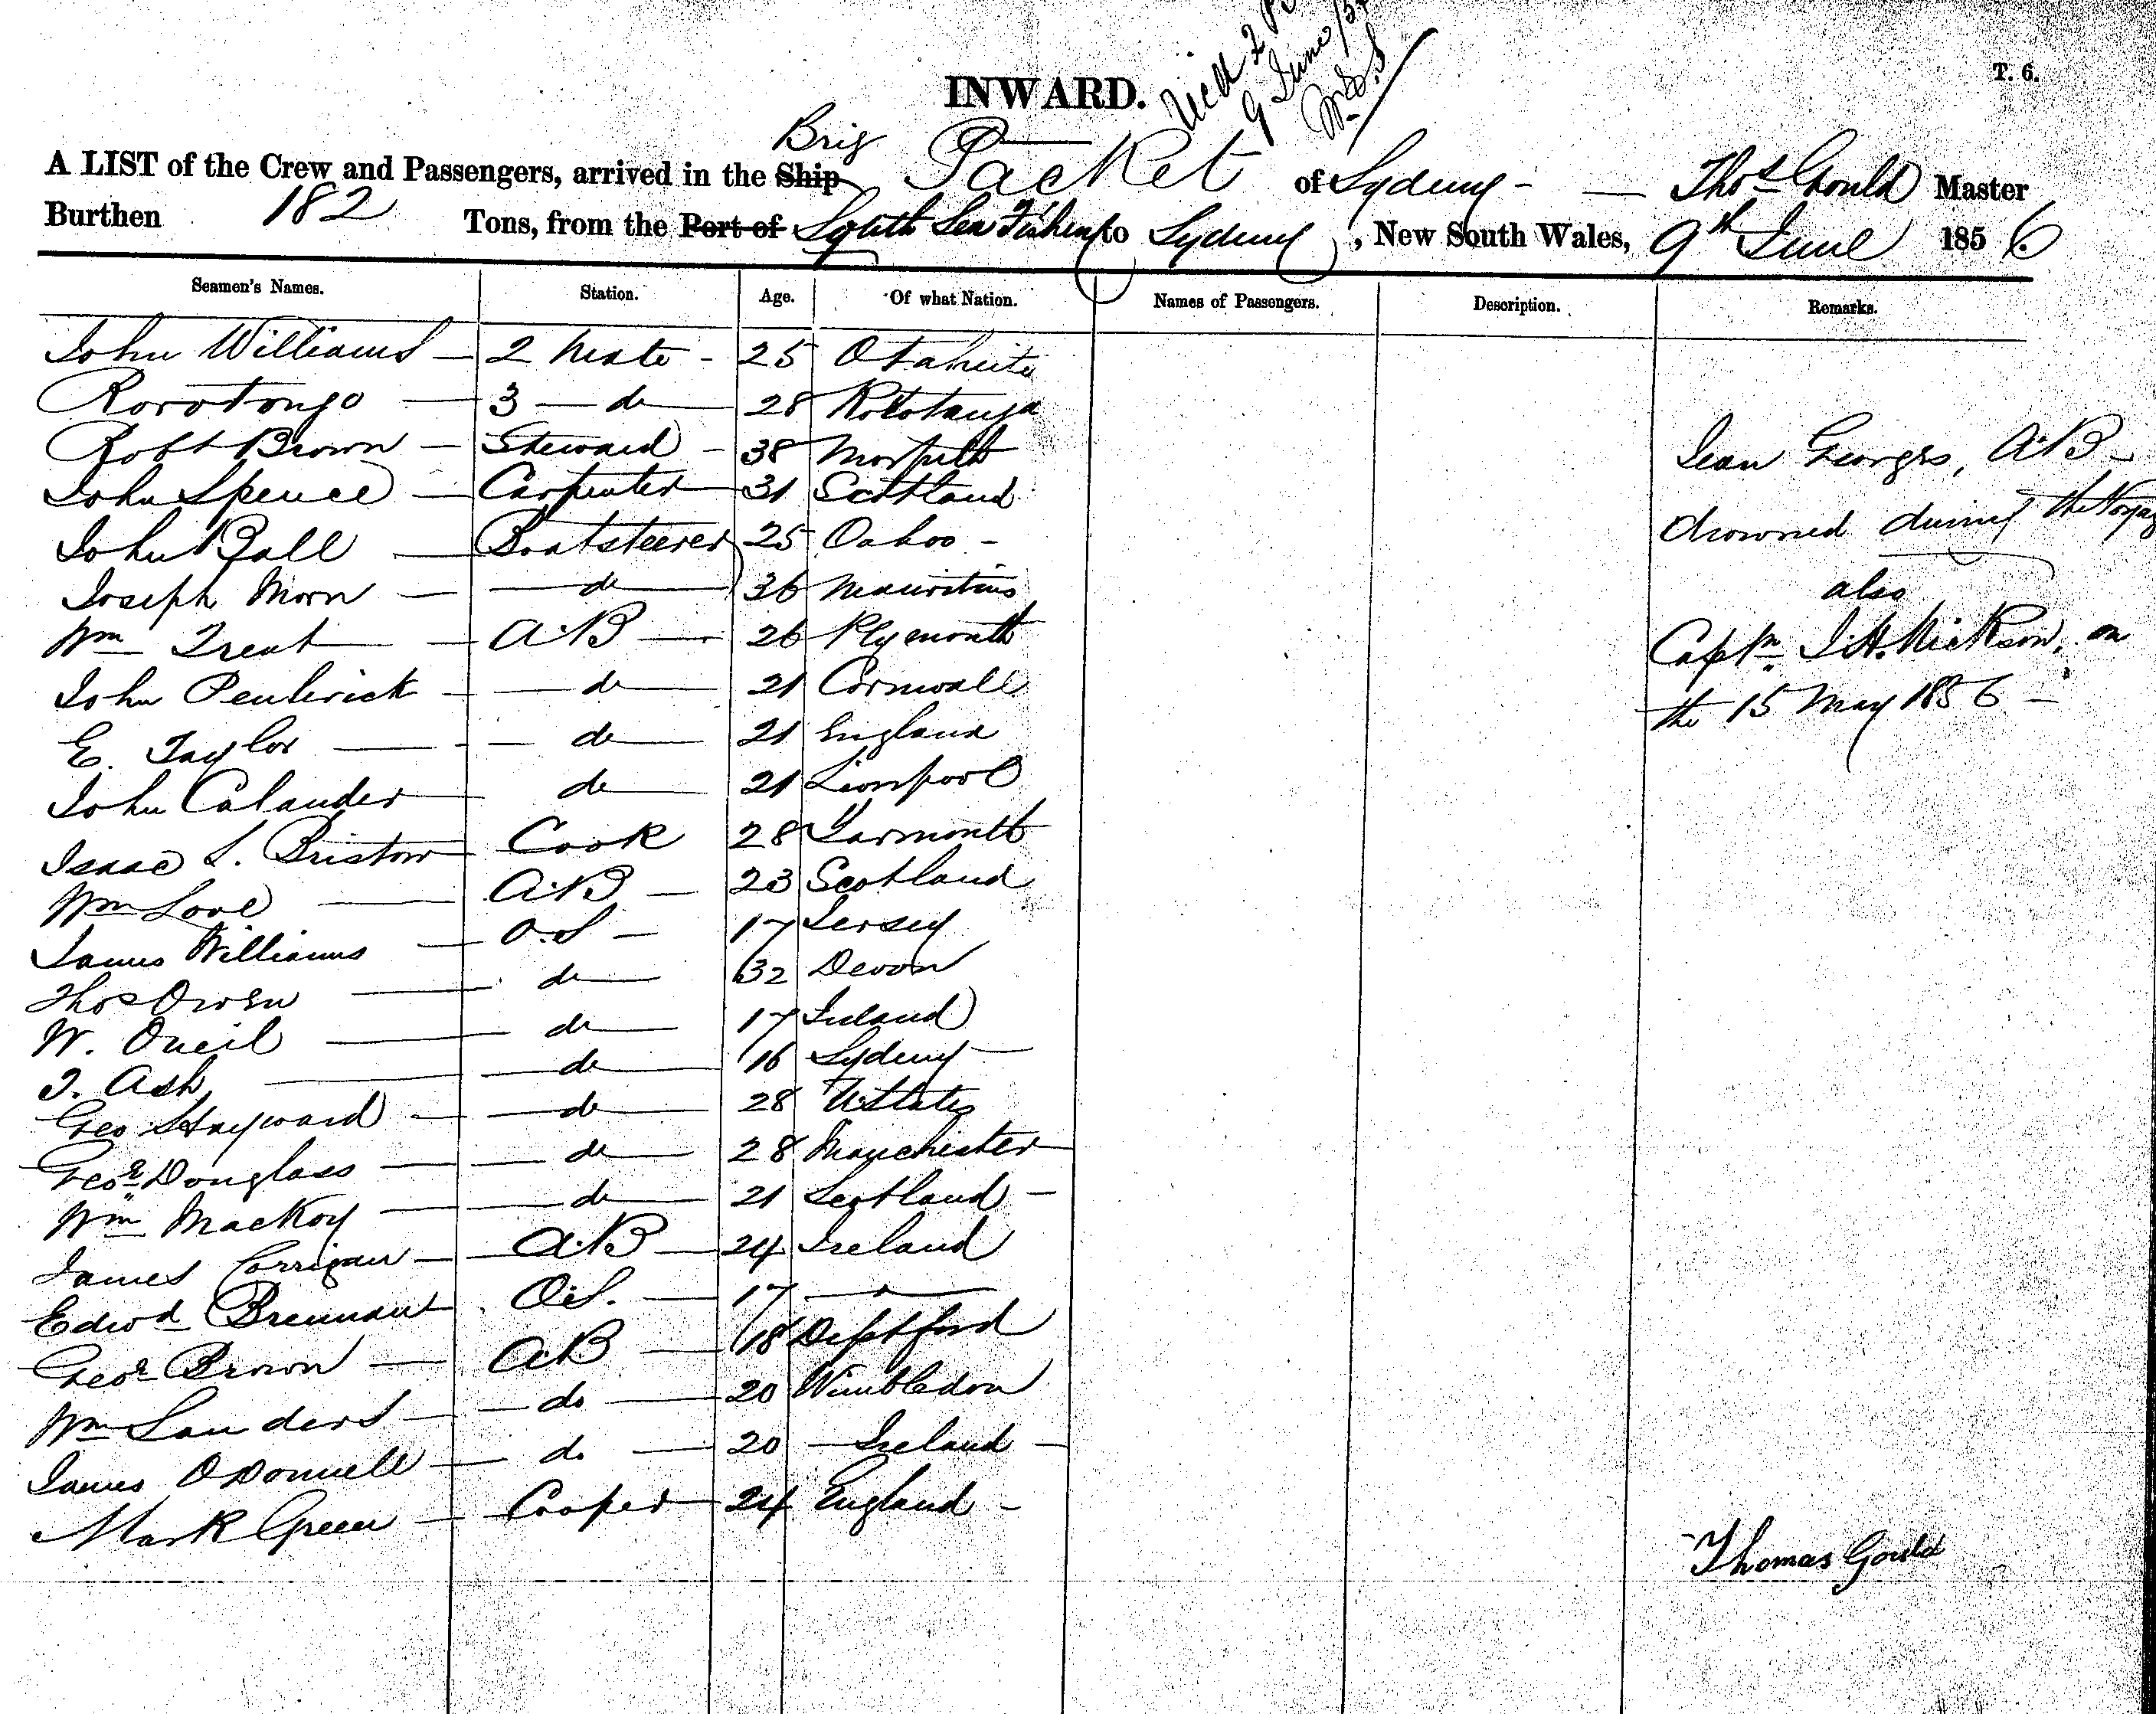 T. 6.
9 June
INWARD.
Brig
A LIST of the Crew and Passengers, arrived in the Ship Packet of Sydney - — Thos Gould Master
Burthen 182 Tons, from the Port of South Sea Fishery to Sydney, New South Wales, 9th June 1856
Seamen's Names. Station. Age. Of what Nation. Names of Passengers. Description. Remarks.
John Williams — 2 Mate - 25 Otaheite
Rorotongo — 3 — do — 28 Rorotonga
Robt Brown — Steward - 38 Morpeth
John Spence — Carpenter — 31 Scotland
John Ball — Boatsteerer 25 Oahoo -
Joseph Morn — — do — 36 Mauritius
Wm Trent — A.B — 26 Plymouth
John Penberick — do — 21 Cornwall
E. Taylor — — do — 21 England
John Calander — do — 21 Liverpool
Isaac S. Bristow — Cook 28 Yarmouth
Wm Love — A.B — 23 Scotland
James Williams — O.S — 17 Jersey
Thos Owen — do — 32 Devon
W. Oneil — do — 17 Ireland
J. Ash — do — 16 Sydney —
Geo Hayward — — do — 28 U. States
Geoe Douglass — — do — 28 Manchester
Wm MacKoy — — do — 21 Scotland —
James Corrigan — A.B — 24 Ireland
Edwd Brennan — O.S. — 17 — " —
Geoe Brown — A.B — 18 Deptford
Wm Sanders — do — 20 Wimbledon
James ODonnell — do — 20 — Ireland —
Mark Green — Cooper — 24 England -
Jean Georges, A.B —
drowned during the Voyag
also
Captn J.H. Nickson, on
the 15 May 1856 —
Thomas Gould